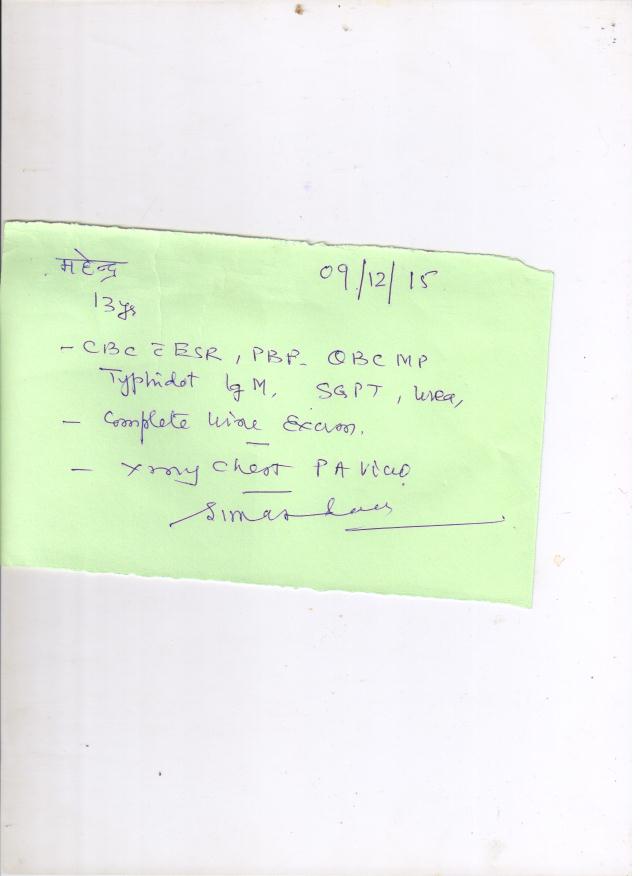 महेन्द्र 09/12/15
13 yr
- CBC c̄ ESR, PBF. QBC MP
Typhidot IgM, SGPT, Urea,
- Complete Urine Exam.
- X-ray Chest PA View